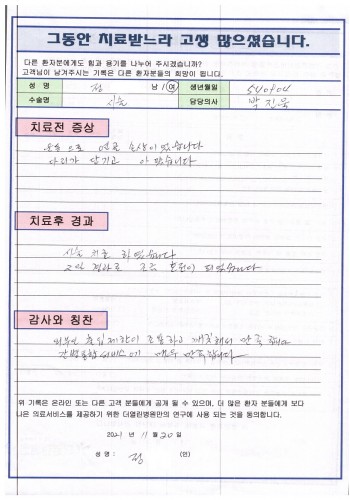 그동안 치료받느라 고생 많으셨습니다.
다른 환자분에게도 힘과 용기를 나누어 주시겠습니까?
고객님이 남겨주시는 기록은 다른 환자분들의 희망이 됩니다.
성 명 정 남 / 여 생년월일 540904
수술명 시술 담당의사 박진욱
치료전 증상
으로 연골 손상이 있습니다
다리가 당기고 아팠습니다
치료후 경과
시술 치료 하였습니다
2일 경과로 조금 호전이 되었습니다
감사와 칭찬
외부인 출입제한이 조용하고 깨끗해서 만족
간병통합서비스 매우 만족합니다
위 기록은 온라인 또는 다른 고객 분들에게 공개 될 수 있으며, 더 많은 환자 분들에게 보다
나은 의료서비스를 제공하기 위한 더열린병원만의 연구에 사용 되는 것을 동의합니다.
2021 년 11 월 20 일
성 명 : 정 (인)